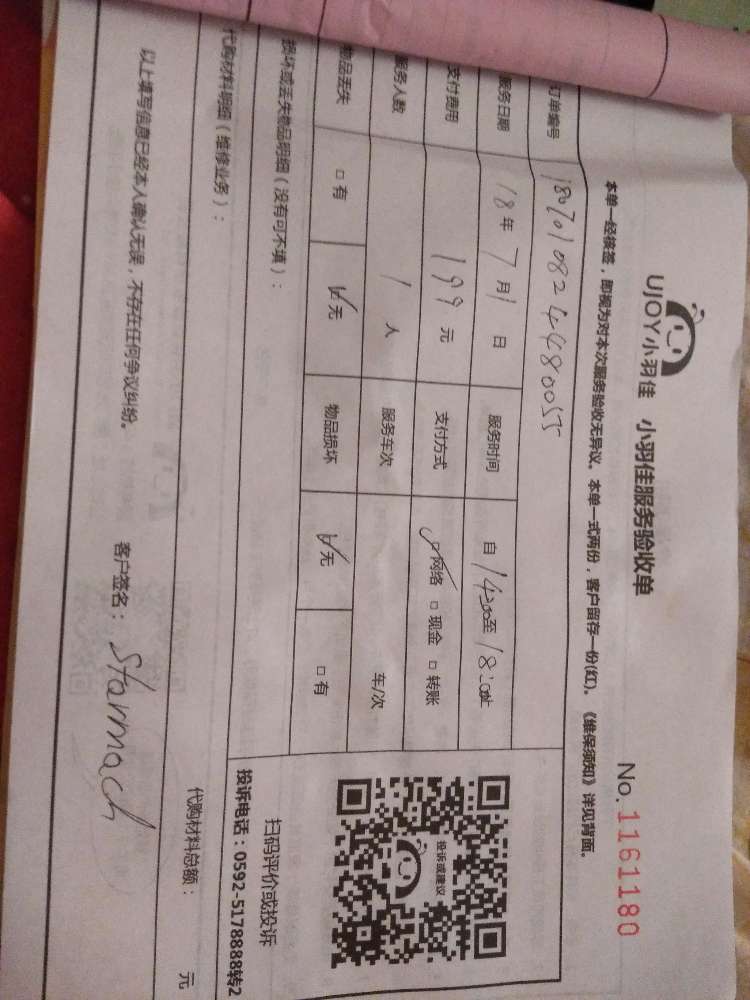 UJOY小羽佳 小羽佳服务验收单
No. 1161180
本单一经核签，即视为对本次服务验收无异议。本单一式两份，客户留存一份(红)。《维保须知》详见背面。
订单编号 1807010824480055
服务日期 18年7月1日 服务时间 自14:00至18:00止
支付费用 199元 支付方式 ☑网络 □现金 □转账
服务人数 1人 服务车次 车/次
物品丢失 □有 ☑无 物品损坏 ☑无 □有
损坏或丢失物品明细（没有可不填）：
投诉或建议
扫码评价或投诉
投诉电话：0592-5178888转2
代购材料明细（维修业务）：
代购材料总额： 元
以上填写信息已经本人确认无误，不存在任何争议纠纷。 客户签名：Starmach